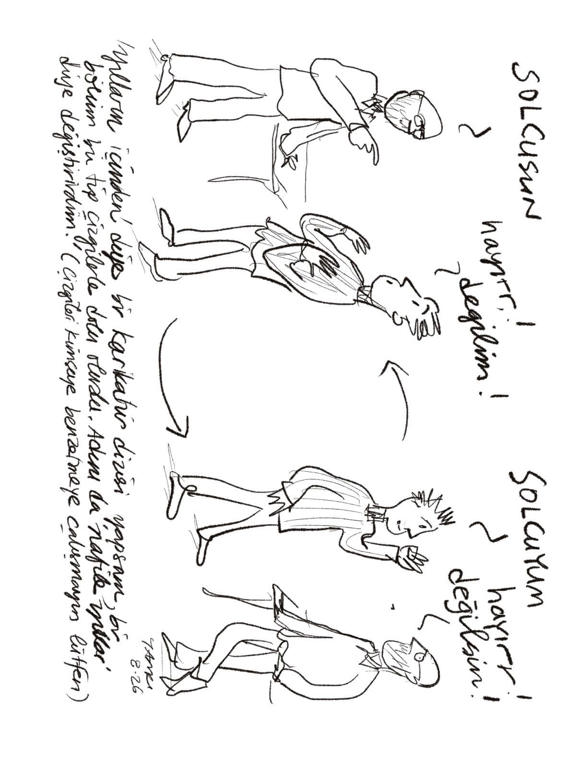 SOLCUSUN
hayırr!
değilim!
SOLCUYUM
hayırr!
değilsin!
'Yılların içinden' diye bir karikatür dizisi yapsam, bir
bölüm bu tip çizgilerle dolu olurdu. Adını da 'nafile yıllar'
diye değiştirirdim. (Çizgileri kimseye benzetmeye çalışmayın lütfen)
8-26